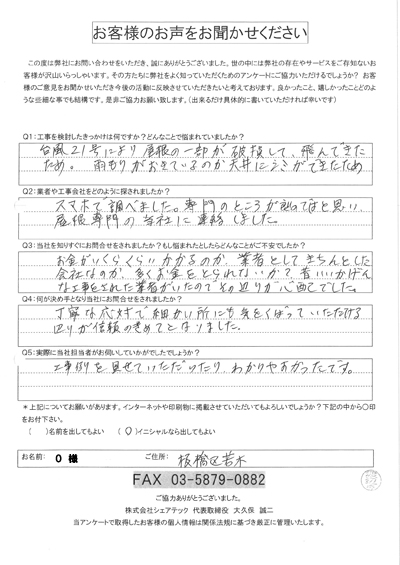 お客様のお声をお聞かせください
この度は弊社にお問い合わせをいただき、誠にありがとうございました。世の中には弊社の存在やサービスをご存知ないお
客様が沢山いらっしゃいます。その方たちに弊社をよく知っていただくためのアンケートにご協力いただけるでしょうか? お客
様のご意見をお聞かせいただき今後の活動に反映させていただきたいと考えております。良かったこと、嬉しかったことどのよ
うな些細な事でも結構です。是非ご協力お願い致します。(出来るだけ具体的に書いていただければ幸いです)
Q1:工事を検討したきっかけは何ですか?どんなことで悩まれていましたか?
台風21号により屋根の一部が破損して、飛んできた
ため。雨もりがおきているのか天井にシミができたため
Q2:業者や工事会社をどのように探されましたか?
スマホで調べました。専門のところが良いと思い、
屋根専門の当社に連絡しました。
Q3:当社を知りすぐにお問合せをされましたか?もし悩まれたとしたらどんなことがご不安でしたか?
お金がいくらくらいかかるのか、業者としてきちんとした
会社なのか、多くお金をとられないか?昔いいかげん
な工事をされた業者がいたのでその辺りが心配でした。
Q4:何が決め手となり当社にお問合せをされましたか?
丁寧な応対で細かい所にも気をくばっていただける
辺りが信頼のきめてとなりました。
Q5:実際に当社担当者がお伺いしていかがでしたでしょうか?
工事例を見せていただいたり、わかりやすかったです。
*上記についてお願いがあります。インターネットや印刷物に掲載させていただいてもよろしいでしょうか?下記の中から〇印
をお付下さい。
( )名前を出してもよい (〇)イニシャルなら出してもよい
お名前: O 様 ご住所: 板橋区若木
FAX 03-5879-0882
ご協力ありがとうございました。
株式会社シェアテック 代表取締役 大久保 誠二
当アンケートで取得したお客様の個人情報は関係法規に基づき厳正に管理いたします。